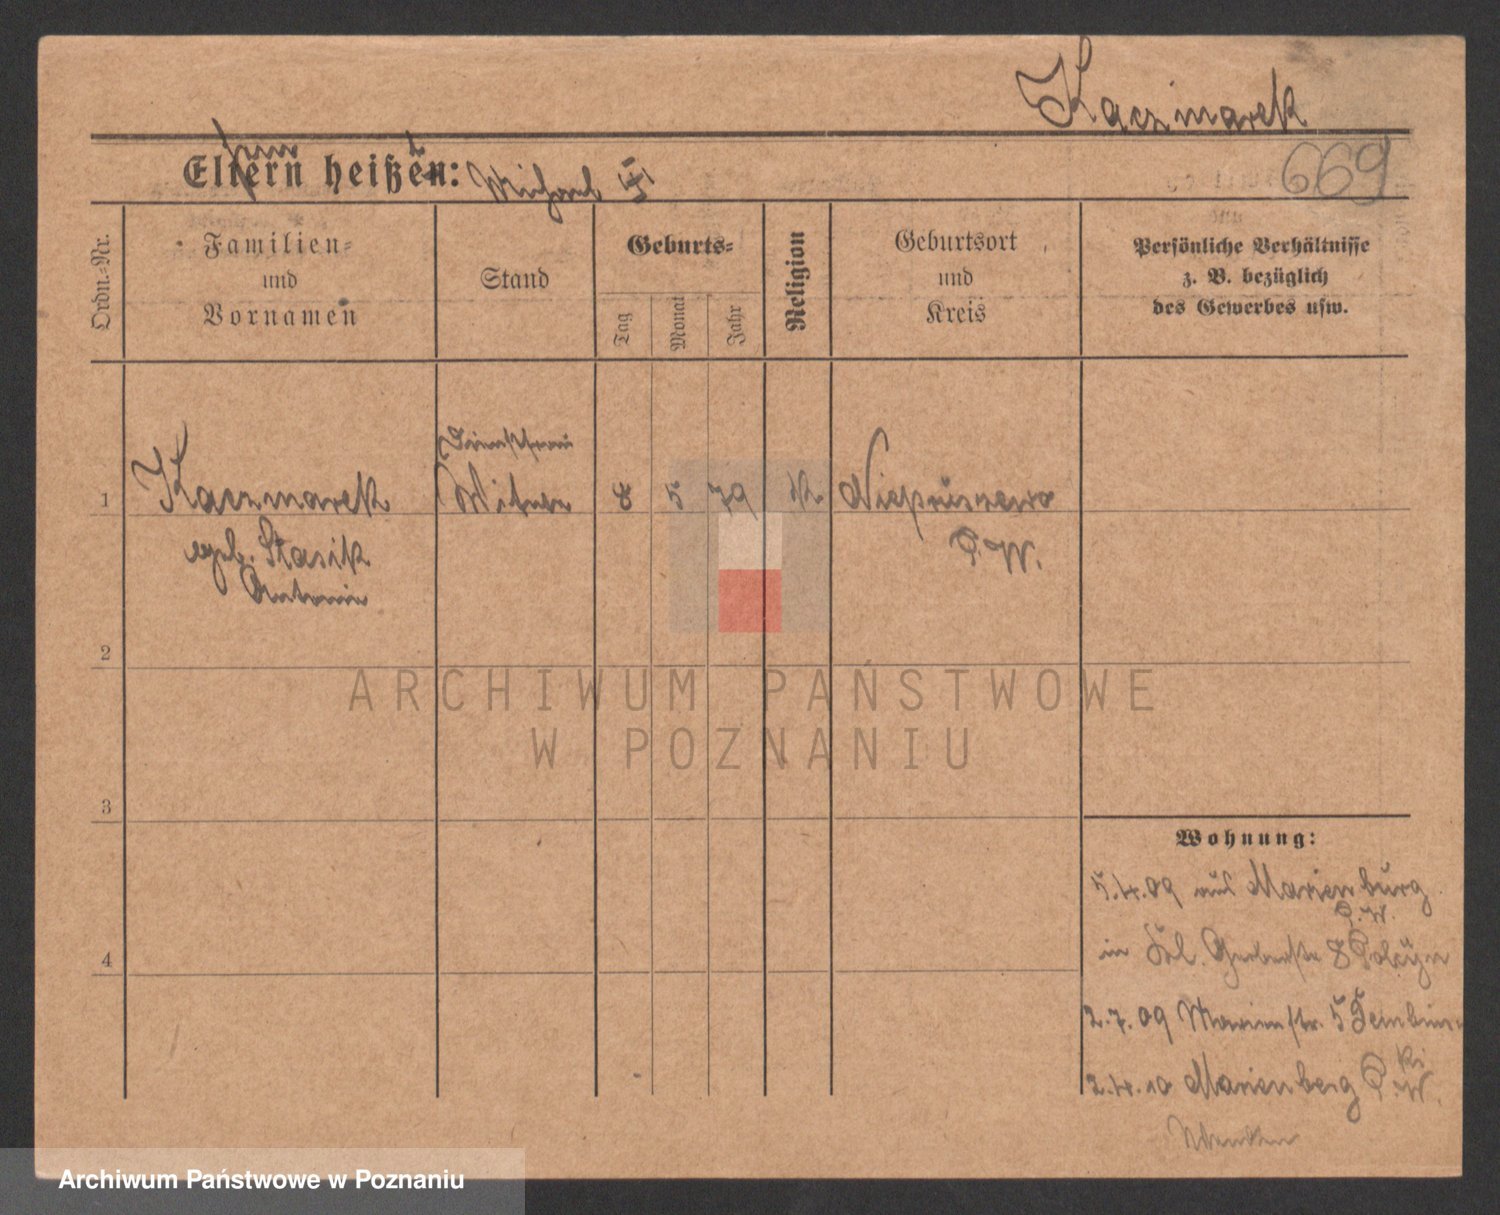 Kaczmarek
669
Eltern heißen: Michael
Ordn.-Nr.
Familien-
und
Vornamen
Stand
Geburts-
Tag
Monat
Jahr
Religion
Geburtsort
und
Kreis
Persönliche Verhältnisse
z. B. bezüglich
des Gewerbes usw.
Dienstfrau
1 Kaczmarek Witwe 8 5 79 k. Niepruszewo
P. W.
geb. Stasik
Antonie
2
ARCHIWUM PAŃSTWOWE
W POZNANIU
3
Wohnung:
5.4.09 aus Marienburg
P. W.
in Kl. Gerberstr 8
4
2.7.09 Marienstr. 5
2.4.10 Marienberg P. W.
Archiwum Państwowe w Poznaniu